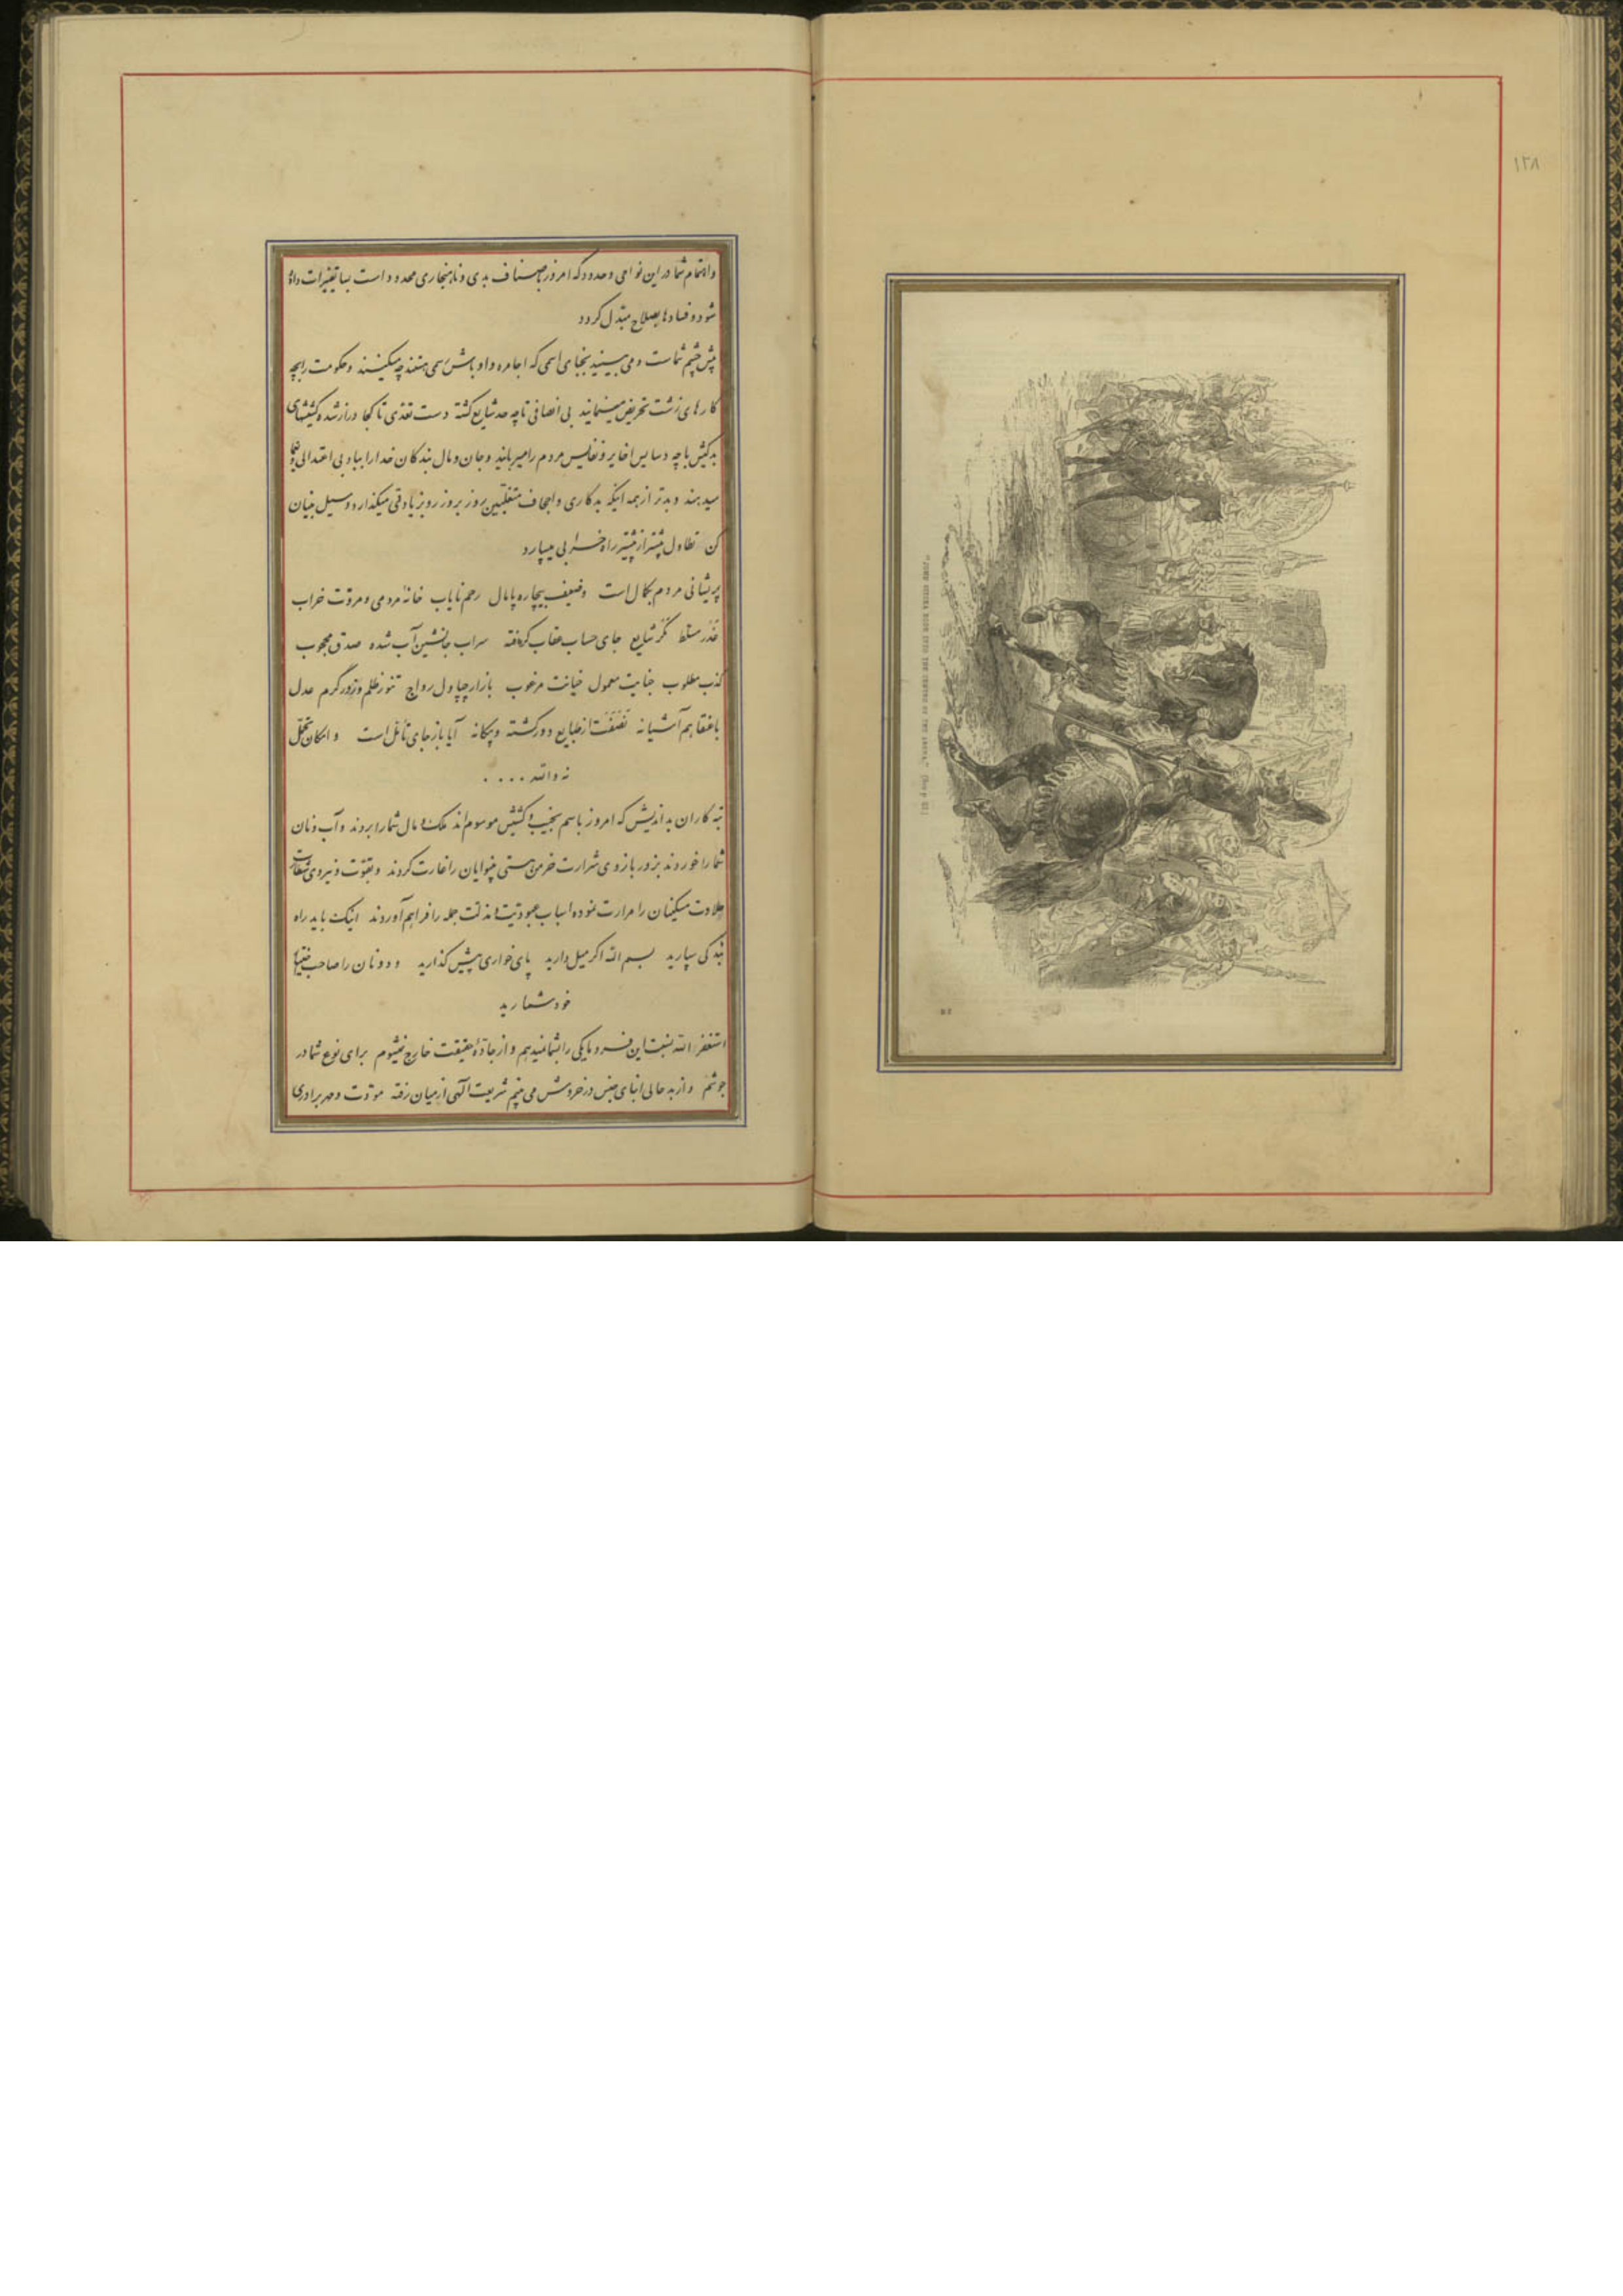 ۱۲۸
واهتمام شما در این نواحی و حدود که امروز باصناف بدی و ناهنجاری محدود است بسا تغییرات داده
شود و فسادها بصلاح مبتدل کردد
پیش چشم شماست و می بینید نجبای اسمی که اجامره و اوباش رسمی هستند چه میکنند و حکومت را بچه
کارهای زشت تحریض مینمایند بی انصافی تا چه حد شایع کشته دست تعدی تا کجا دراز شده کشیشهای
بدکیش با چه دسایس اخایر و نفایس مردم را میربایند و جان و مال بندکان خدا را بباد بی اعتدالی
میدهند و بدتر از همه اینکه بدکاری و اجحاف متغلبین روز بروز رو بزیادتی میکذارد و سیل بنیان
کن تطاول بیشتر از پیشتر راه خرابی میسپارد
پریشانی مردم بکمال است وضعیف بیچاره پامال رحم نایاب خانهٔ مردمی و مروت خراب
غدر مسلط مکر شایع جای حساب عقاب کرفته سراب جانشین آب شده صدق محجوب
کذب مطلوب جنایت معمول خیانت مرغوب بازار چپاول رواج تنور ظلم و زور کرم عدل
با عنقا هم آشیانه نصفت از طبایع دور کشته و بیکانه آیا باز جای تأمّل است و امکان تحمّل
نه والله ....
تبه کاران بداندیش که امروز باسم نجیب و کشیش موسوم اند ملک و مال شما را بردند و آب و نان
شما را خوردند بزور بازوی شرارت خرمن هستی بینوایان را غارت کردند و بقوت و نیروی شقاوت
حلاوت مسکینان را مرارت نموده اسباب عبودیت و مذلت جمله را فراهم آوردند اینک باید راه
بندکی سپارید بسم الله اکر میل دارید پای خواری پیش کذارید و دونان را صاحب اختیار
خود شمارید
استغفر الله نسبت این فرومایکی را بشما نمیدهم و از جادّهٔ حقیقت خارج نمیشوم برای نوع شما در
جوشم و از بد حالی ابنای جنس در خروش می بینم شریعت الهی از میان رفته مودّت و مهر برادری